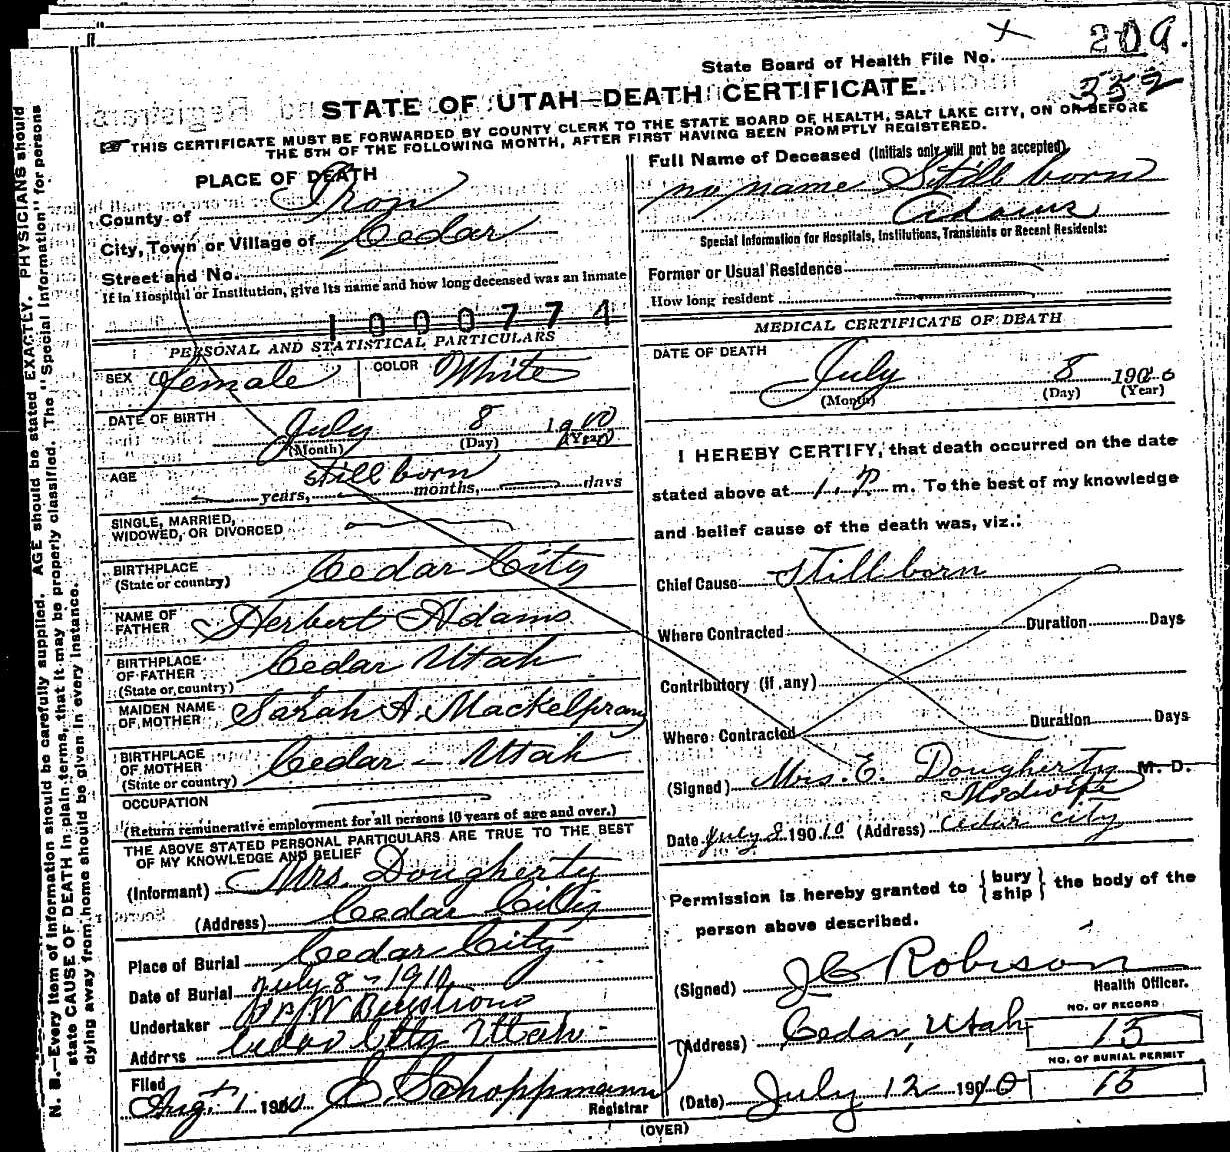 State Board of Health File No. 209.
352
STATE OF UTAH—DEATH CERTIFICATE.
THIS CERTIFICATE MUST BE FORWARDED BY COUNTY CLERK TO THE STATE BOARD OF HEALTH, SALT LAKE CITY, ON OR BEFORE
THE 5TH OF THE FOLLOWING MONTH, AFTER FIRST HAVING BEEN PROMPTLY REGISTERED.
PLACE OF DEATH
County of Iron
City, Town or Village of Cedar
Street and No.
If in Hospital or Institution, give its name and how long deceased was an Inmate
1000774
PERSONAL AND STATISTICAL PARTICULARS
SEX Female COLOR White
DATE OF BIRTH July 8 1910
(Month) (Day) (Year)
AGE still born
years, months, days
SINGLE, MARRIED,
WIDOWED, OR DIVORCED
BIRTHPLACE Cedar City
(State or country)
NAME OF
FATHER Herbert Adams
BIRTHPLACE
OF FATHER Cedar Utah
(State or country)
MAIDEN NAME
OF MOTHER Sarah A. Mackelprang
BIRTHPLACE
OF MOTHER Cedar - Utah
(State or country)
OCCUPATION
(Return remunerative employment for all persons 10 years of age and over.)
THE ABOVE STATED PERSONAL PARTICULARS ARE TRUE TO THE BEST
OF MY KNOWLEDGE AND BELIEF
(Informant) Mrs. Dougherty
(Address) Cedar City
Place of Burial Cedar City
Date of Burial July 8 - 1910
Undertaker
Address Cedar City Utah
Filed
Aug. 1 1910 E. Schoppmann
Registrar
Full Name of Deceased (Initials only will not be accepted)
no name Still born
Adams
Special Information for Hospitals, Institutions, Transients or Recent Residents:
Former or Usual Residence
How long resident
MEDICAL CERTIFICATE OF DEATH
DATE OF DEATH
July 8 1910
(Month) (Day) (Year)
I HEREBY CERTIFY, that death occurred on the date
stated above at 1. P. m. To the best of my knowledge
and belief cause of the death was, viz.:
Chief Cause Stillborn
Where Contracted Duration Days
Contributory (if any)
Where Contracted Duration Days
(Signed) Mrs. E. Dougherty M. D.
Midwife
Date July 8 1910 (Address) Cedar City
Permission is hereby granted to { bury ship } the body of the
person above described.
(Signed) J C Robison
Health Officer.
(Address) Cedar, Utah
NO. OF RECORD
15
NO. OF BURIAL PERMIT
15
(Date) July 12 1910
(OVER)
N. B.—Every item of information should be carefully supplied. AGE should be stated EXACTLY. PHYSICIANS should
state CAUSE OF DEATH in plain terms, that it may be properly classified. The "Special Information" for persons
dying away from home should be given in every instance.